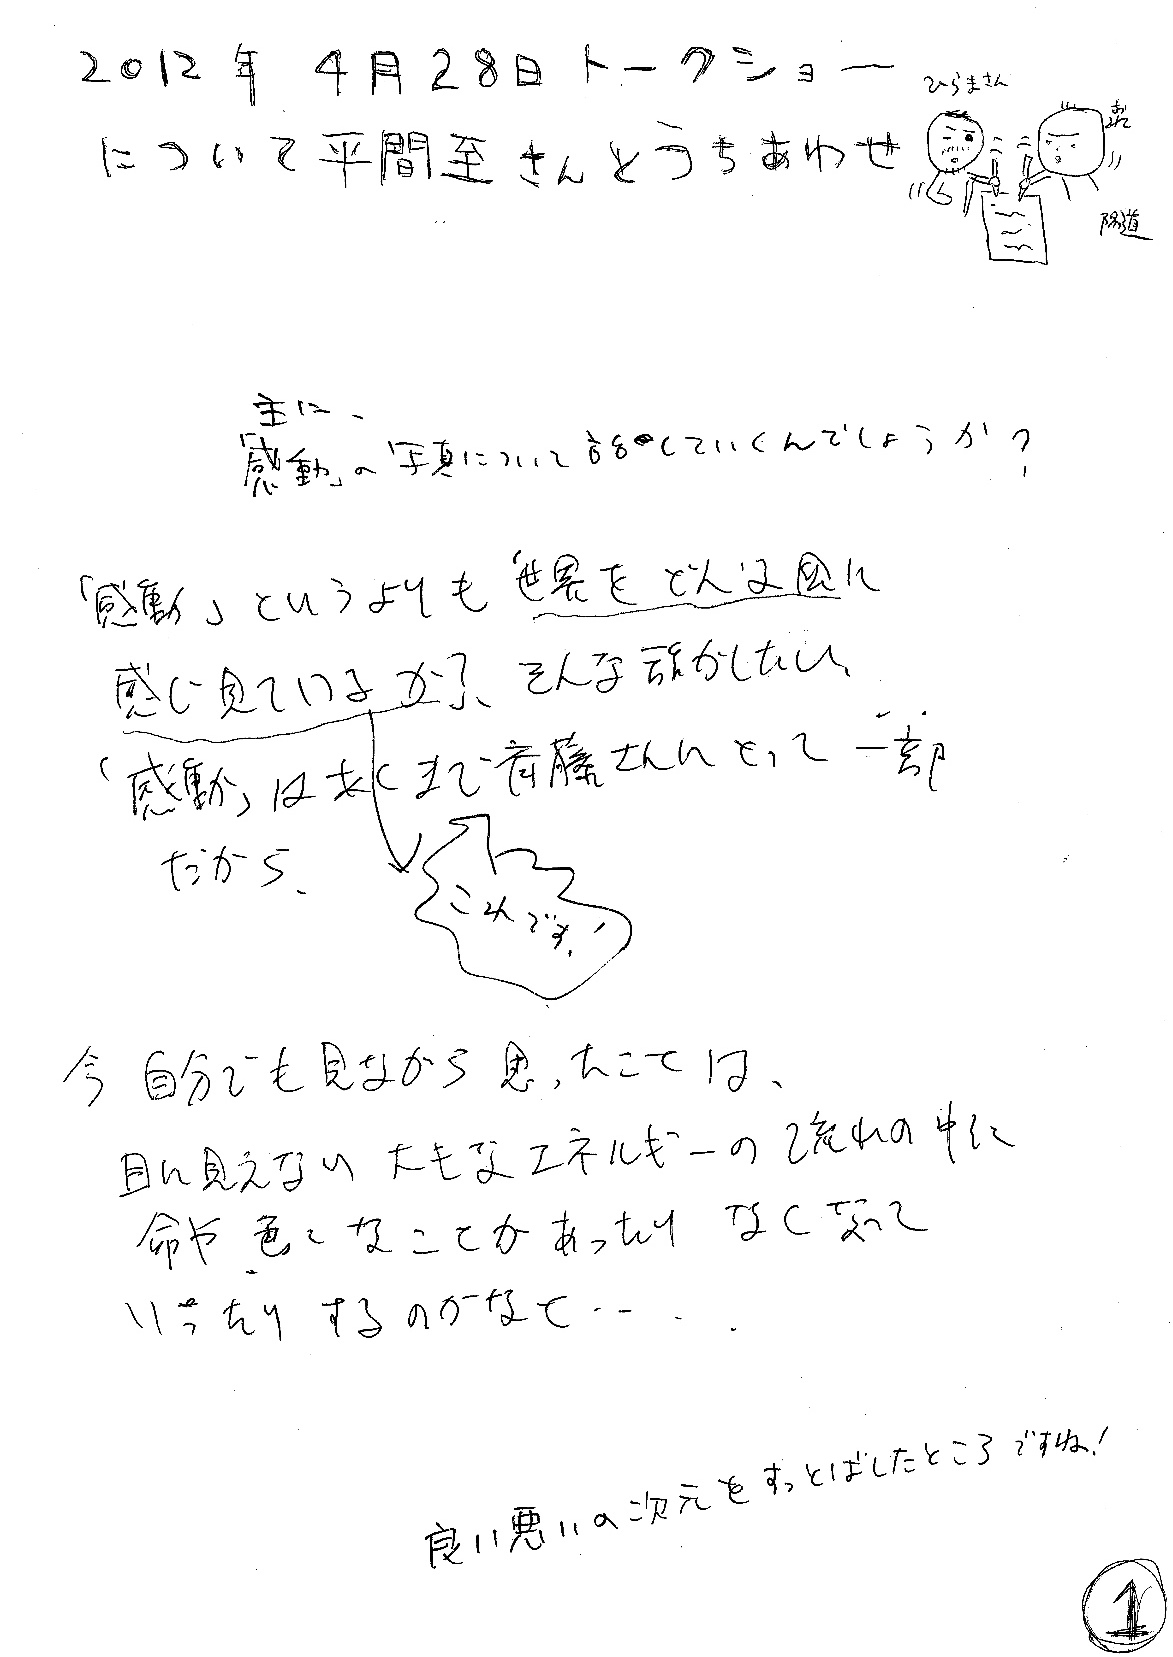 2012年 4月28日トークショー
について平間至さんとうちあわせ
ひらまさん
おれ
陽道
主に、
「感動」の写真について話していくんでしょうか?
「感動」というよりも「世界をどんな風に
感じ見ているか」、そんな話がしたい、
「感動」はあくまで斉藤さんにとって一部
だから、
これです!
今自分でも見ながら思ったことは、
目に見えない大きなエネルギーの流れの中に
命や色々なことがあったりなくなって
いったりするのかなと‥‥
良い悪いの次元をすっとばしたところですね!
1